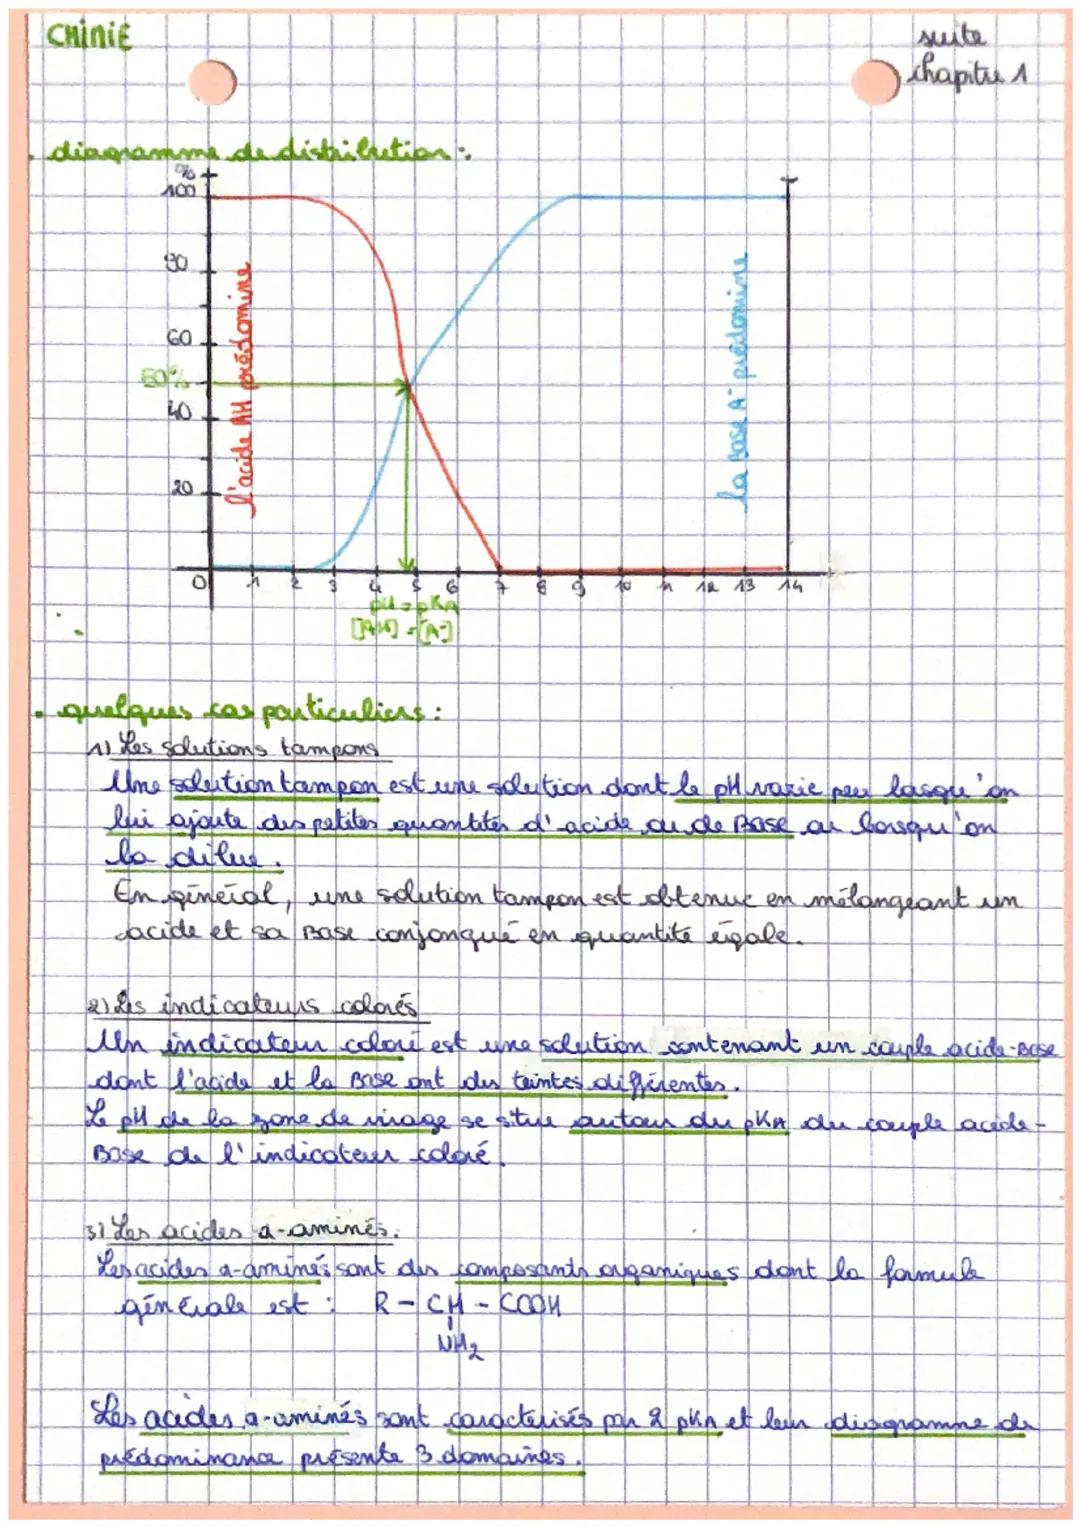 CHIMIE
suite
chapitre 1
. diagramme de distribution :
%
100
80
60
50%
40
20
l'acide AH prédomine
la Base A⁻ prédomine
0 1 2 3 4 5 6 7 8 9 10 11 12 13 14
pH = pKA
[AH] = [A⁻]
. quelques cas particuliers :
1) Les solutions tampons
Une solution tampon est une solution dont le pH varie peu lorsqu'on
lui ajoute des petites quantités d'acide ou de Base ou lorsqu'on
la dilue.
En général, une solution tampon est obtenue en mélangeant un
acide et sa Base conjongué en quantité égale.
2) Les indicateurs colorés
Un indicateur coloré est une solution contenant un couple acide-Base
dont l'acide et la Base ont des teintes différentes.
Le pH de la zone de virage se situe autour du pKA du couple acide-
Base de l'indicateur coloré.
3) Les acides a-aminés.
Les acides a-aminés sont des composants organiques dont la formule
générale est : R - CH - COOH
NH₂
Les acides a-aminés sont caractérisés par 2 pKA et leur diagramme de
prédominance présente 3 domaines.